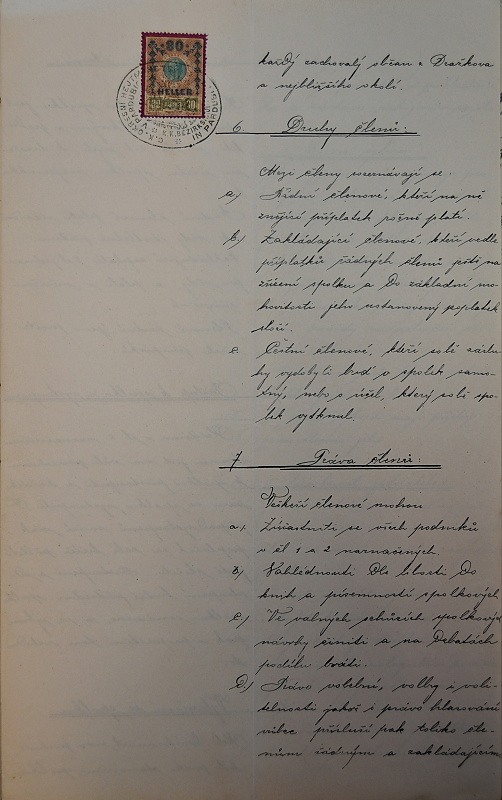 80
HELLER
každý zachovalý občan z Dražkova
a nejbližšího okolí.
6. Druhy členů:
Mezi členy rozeznávají se:
a) Řádní členové, kteří na ně
znějící příplatek ročně platí.
b) Zakládající členové, kteří vedle
příplatků řádných členů ještě na
zřízení spolku a do základní mo-
hovitosti jeho ustanovený poplatek
složí.
c. Čestní členové, kteří sobě záslu-
hy vydobyli buď o spolek samo-
tný, nebo o účel, který sobě spo-
lek vytknul.
7. Práva členů:
Veškeří členové mohou
a) Zúčastniti se všech podniků
v čl 1 a 2 naznačených.
b) Nahlédnouti dle libosti do
knih a písemností spolkových
c) Ve valných schůzích spolkových
návrhy činiti a na debatách
podílu bráti.
D) Právo volební, volby i voli-
telnosti jakož i právo hlasování
vůbec přísluší pak toliko čle-
nům řádným a zakládajícím